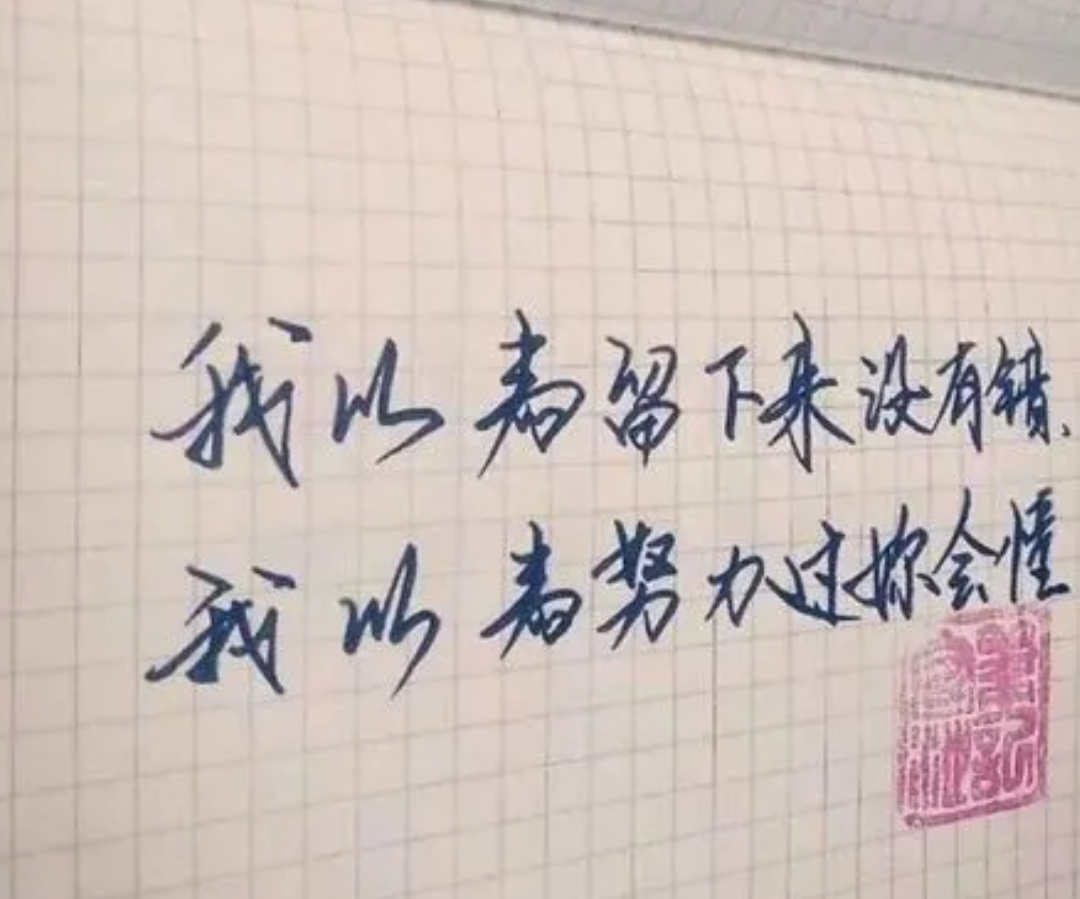 我以為留下来没有错、
我以為努力过妳会懂